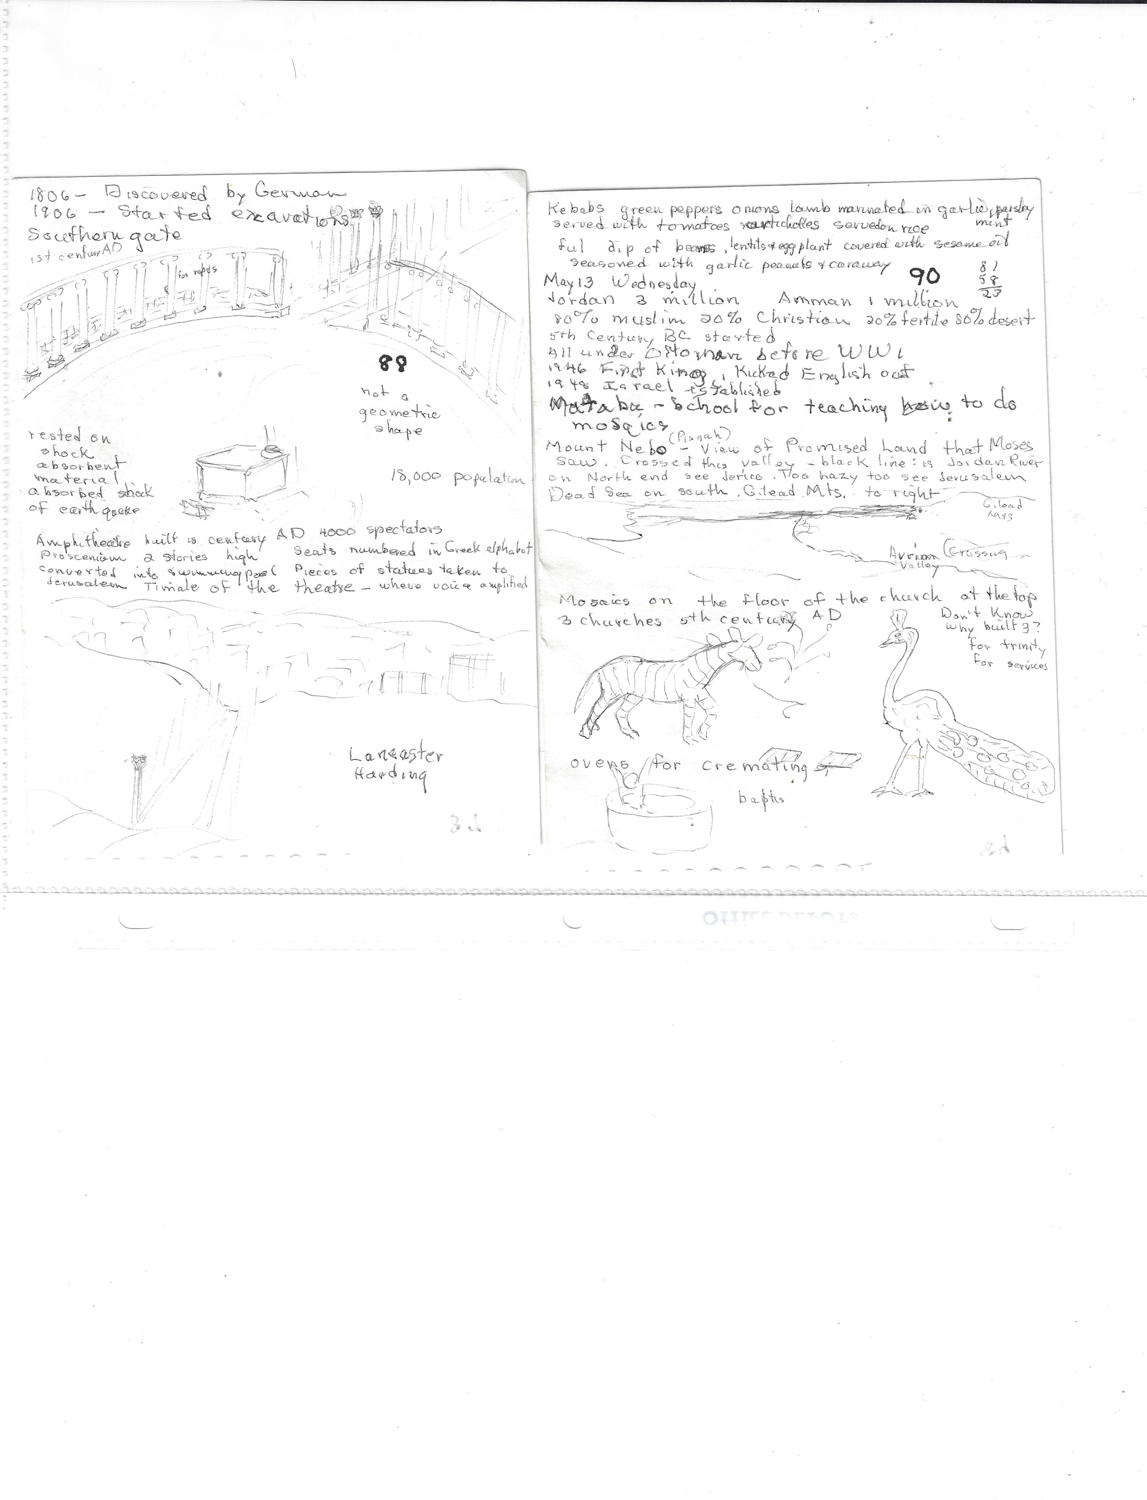 1806 - Discovered by German
1906 - Started excavations
Southern gate
1st century AD
for ropes
88
not a
geometric
shape
18,000 population
rested on
shock
absorbent
material
absorbed shock
of earthquake
Amphitheatre built is century AD 4000 spectators
Proscenium 2 stories high Seats numbered in Greek alphabet
converted into swimming pool Pieces of statues taken to
Jerusalem Timale of the theatre - where voice amplified
Lancaster
Harding
Kebabs green peppers onions lamb marinated in garlic, parsley
mint
served with tomatoes artichokes served on rice
ful dip of beans, lentils & eggplant covered with sesame oil
seasoned with garlic peanuts & caraway
90
81
58
23
May 13 Wednesday
Jordan 3 million Amman 1 million
80% muslim 20% Christian 20% fertile 80% desert
5th Century BC started
All under Ottoman before WW1
1946 First King, Kicked English out
1948 Israel established
Mataba - School for teaching how to do
mosaics
Mount Nebo (Pisgah) - View of Promised Land that Moses
saw. Crossed this valley - black line is Jordan River
on North end see Jerico. Too hazy too see Jerusalem
Dead Sea on south. Gilead Mts. to right
Gilead
Crossing
Valley
Mosaics on the floor of the church at the top
3 churches 5th century AD
Don't Know
why built 3?
for trinity
for services
ovens for cremating